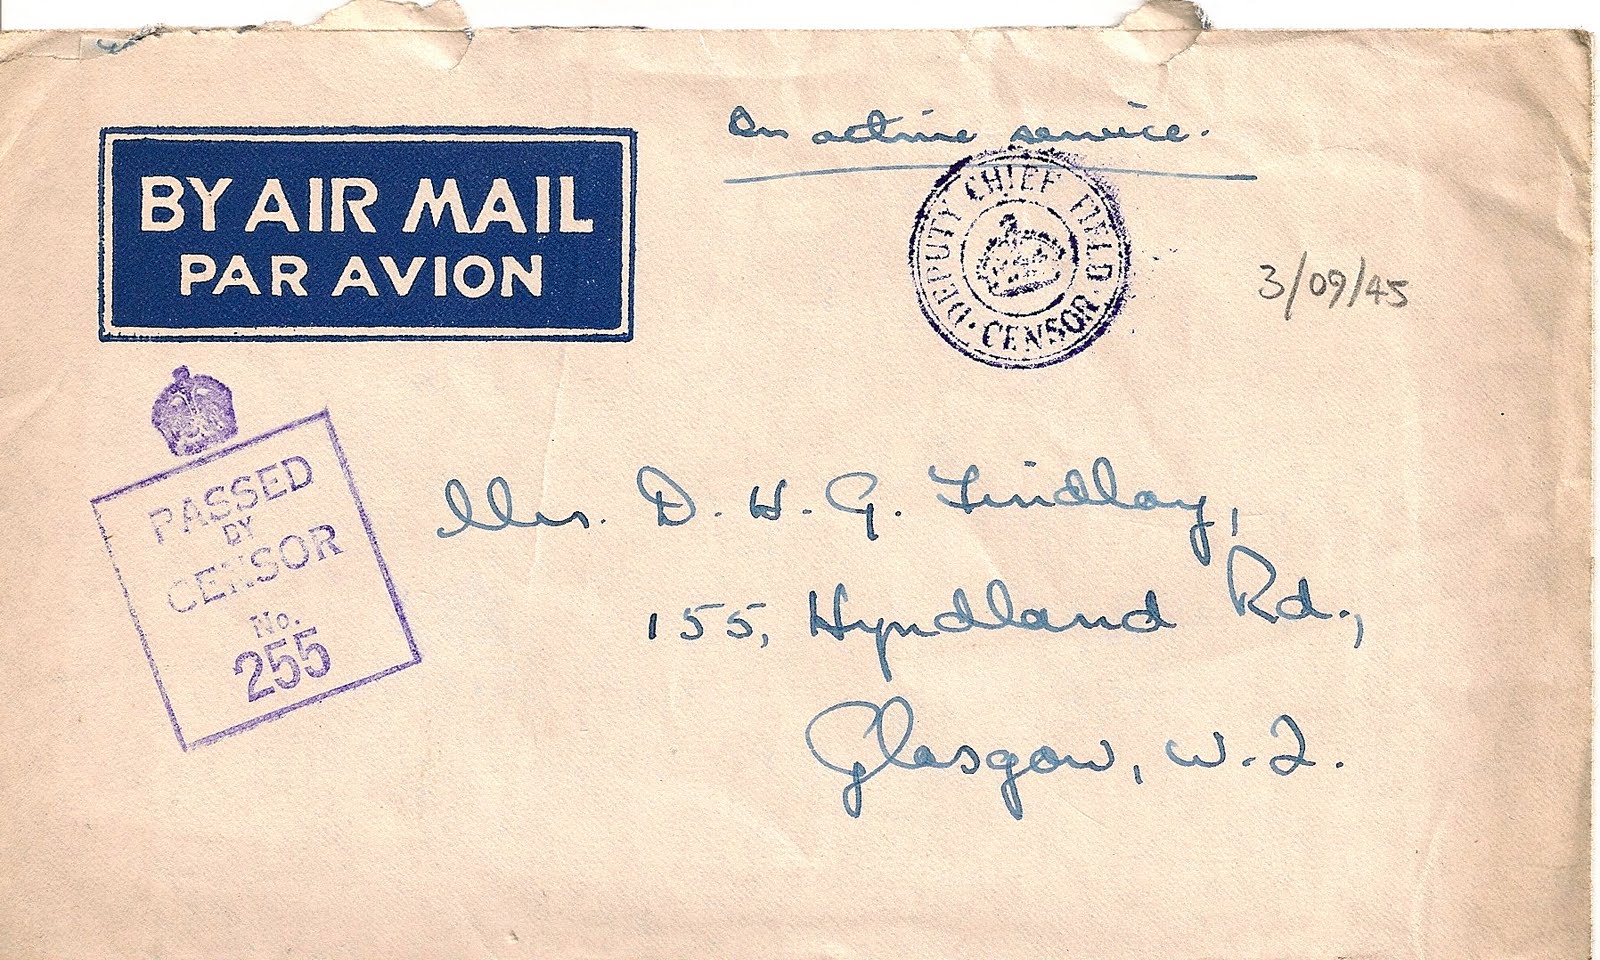 On active service.
BY AIR MAIL
PAR AVION
DEPUTY CHIEF FIELD CENSOR
3/09/45
PASSED
BY
CENSOR
No.
255
Mrs. D. H. G. Findlay,
155, Hyndland Rd.,
Glasgow, W.2.